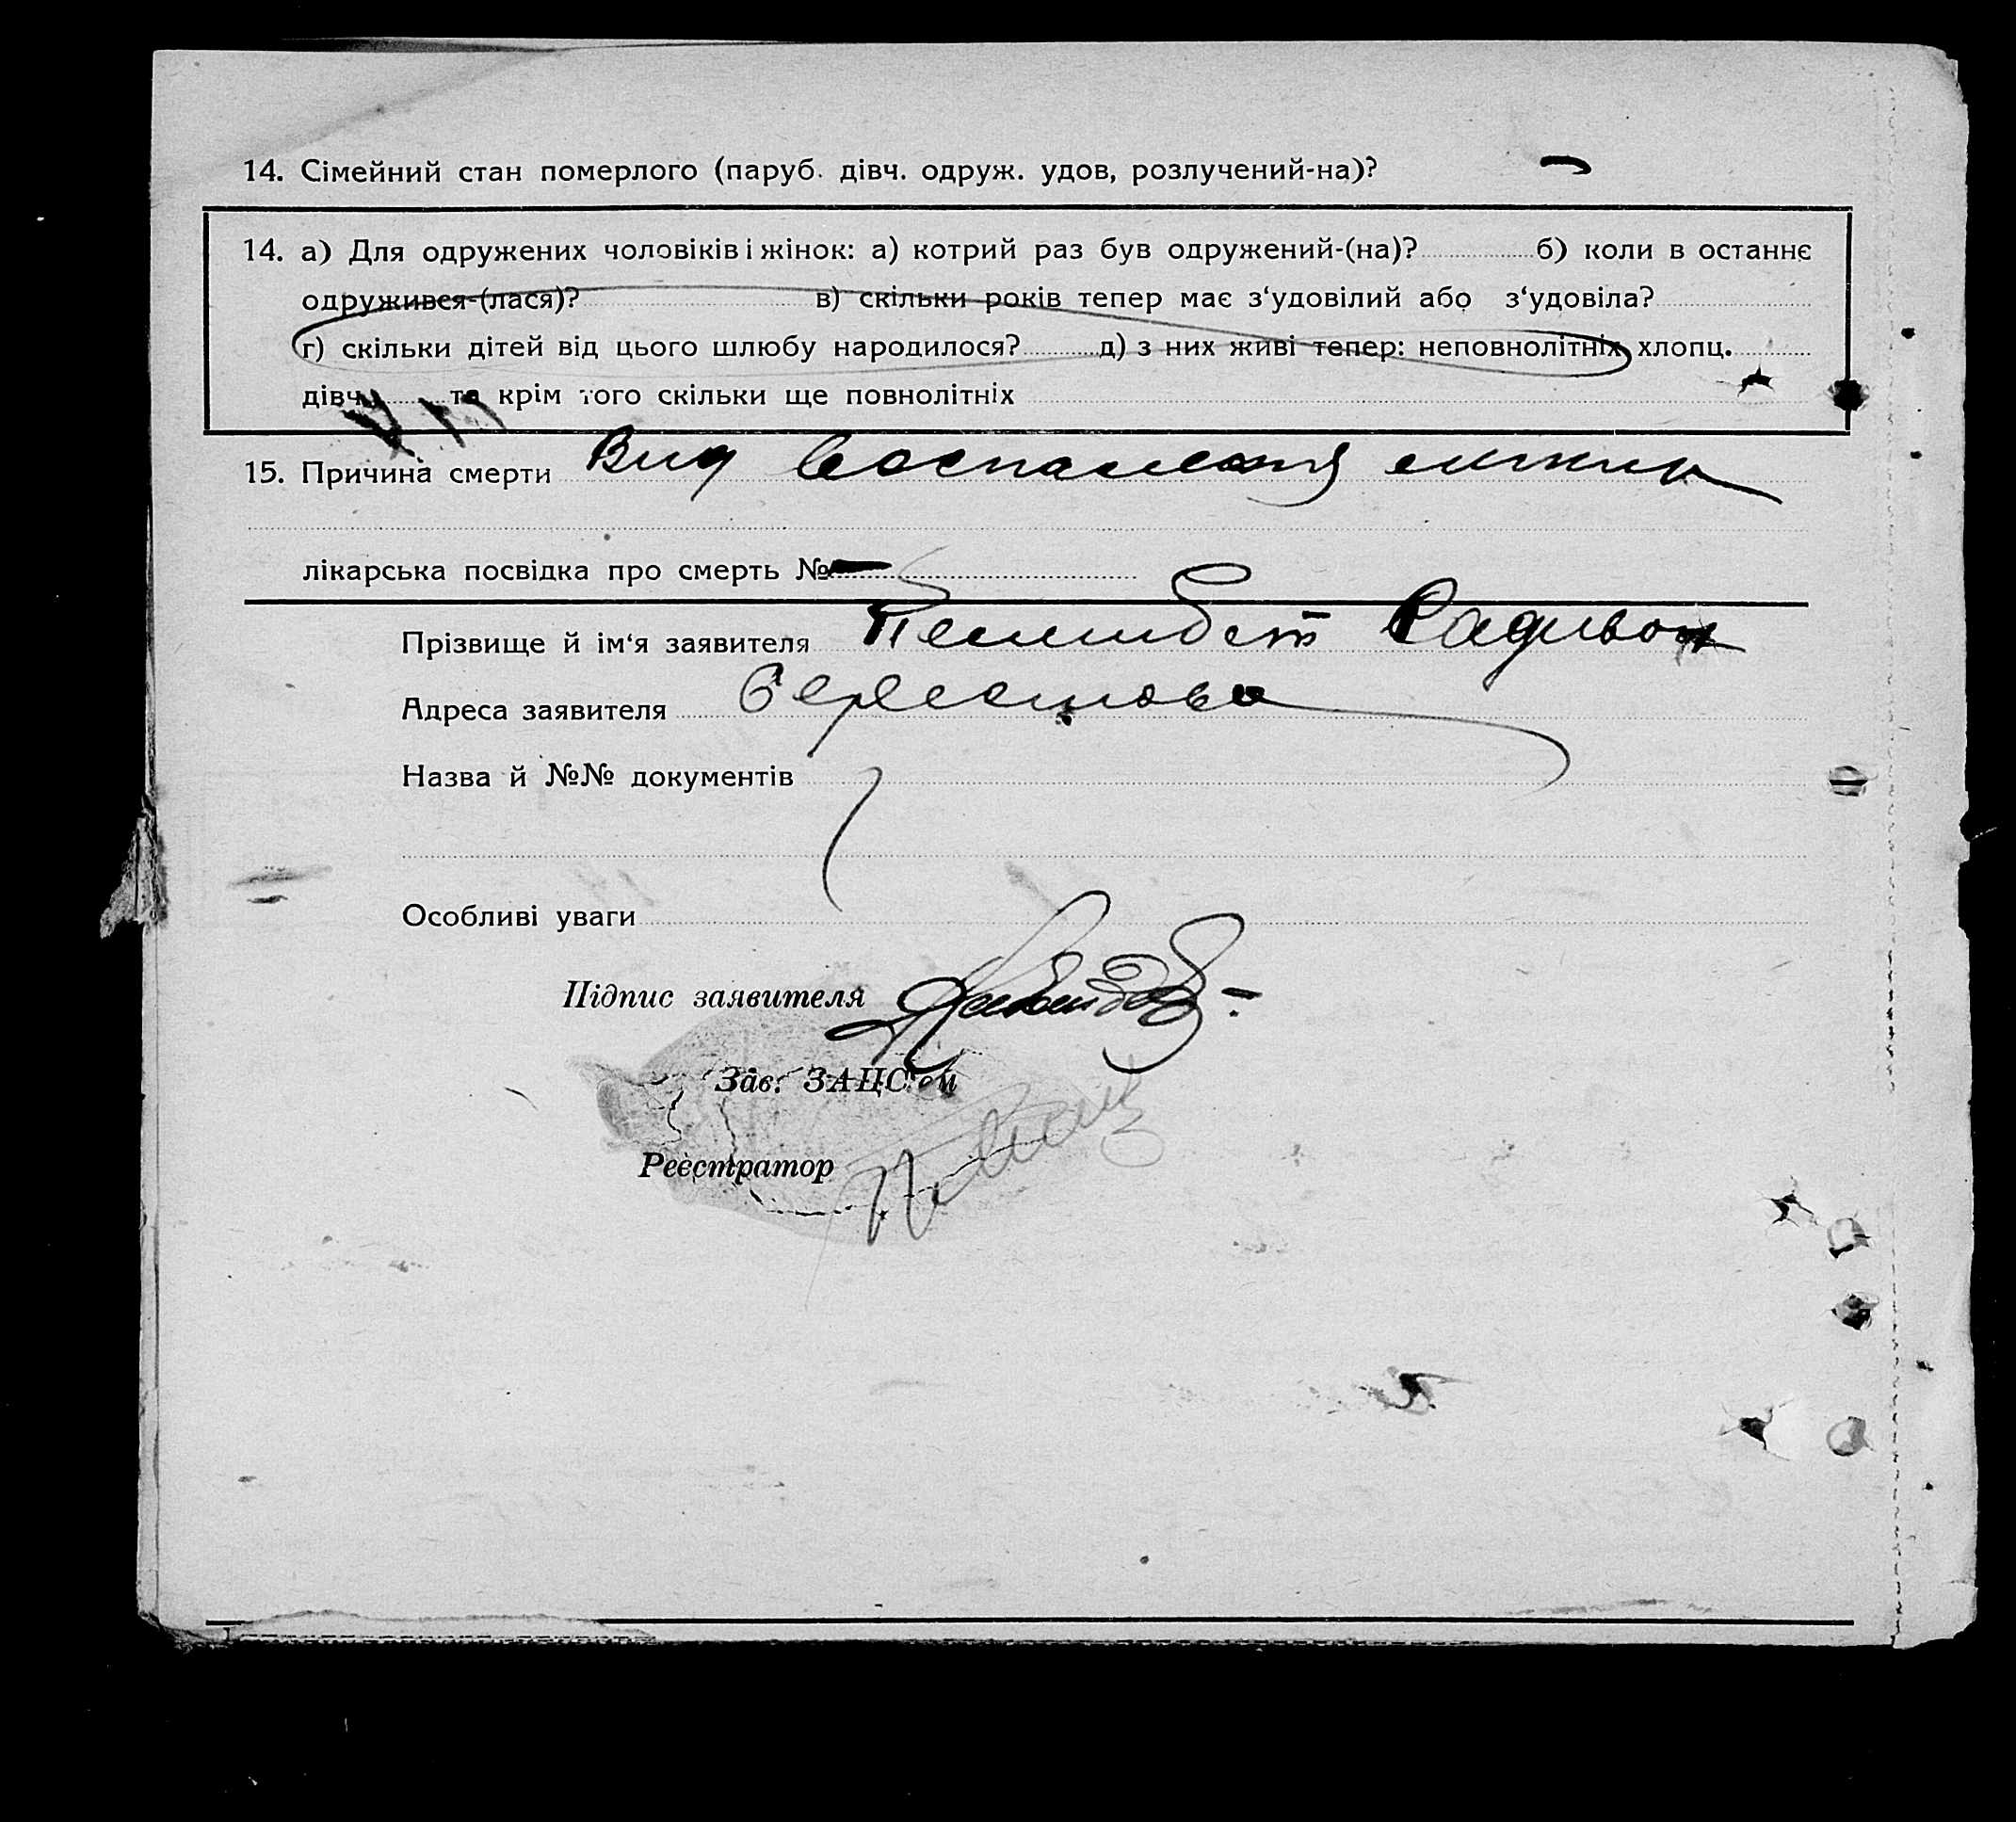 14. Сімейний стан померлого (паруб. дівч. одруж. удов, розлучений-на)?
14. а) Для одружених чоловіків і жінок: а) котрий раз був одружений-(на)? б) коли в останнє
одружився-(лася)? в) скільки років тепер має з‘удовілий або з‘удовіла?
г) скільки дітей від цього шлюбу народилося? д) з них живі тепер: неповнолітніх хлопц.
дівч. та крім того скільки ще повнолітніх
15. Причина смерти Вид
лікарська посвідка про смерть №
Прізвище й ім‘я заявителя Радивон
Адреса заявителя
Назва й №№ документів
Особливі уваги
Підпис заявителя
Зав. ЗАЦС‘ом
Реєстратор